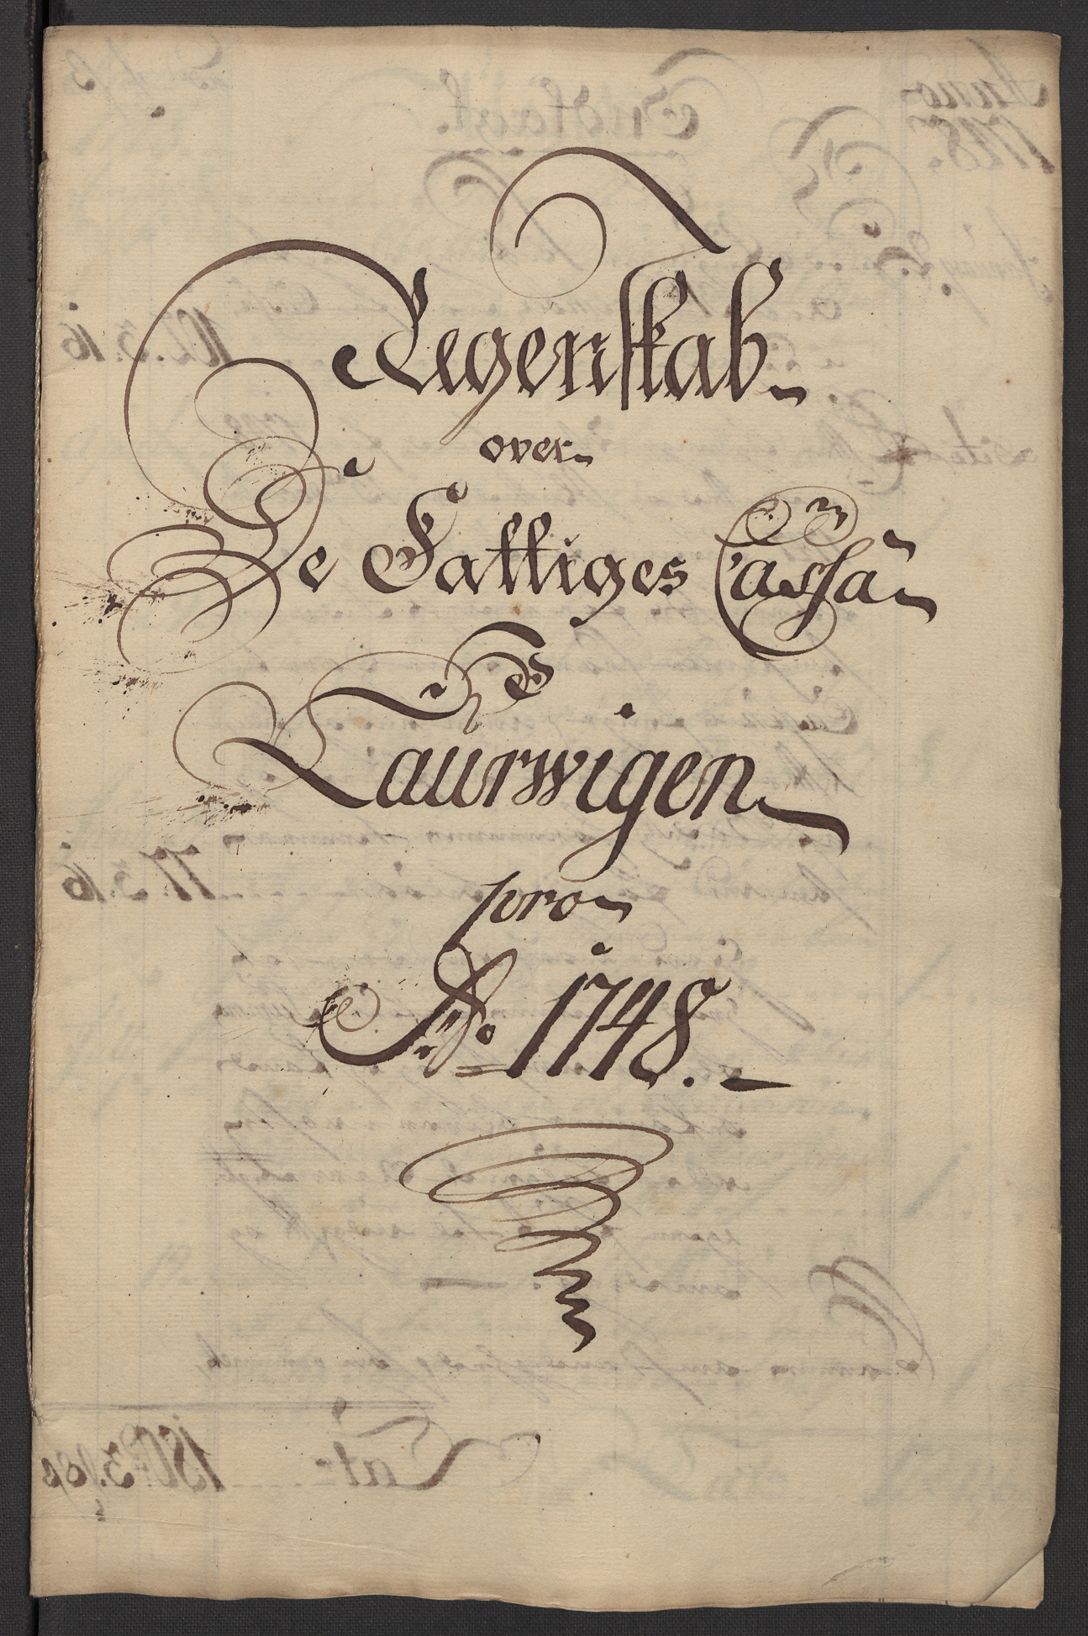 Regenskab
over
De Fattiges Cassa
I
Laurwigen
pro
Ao. 1748.